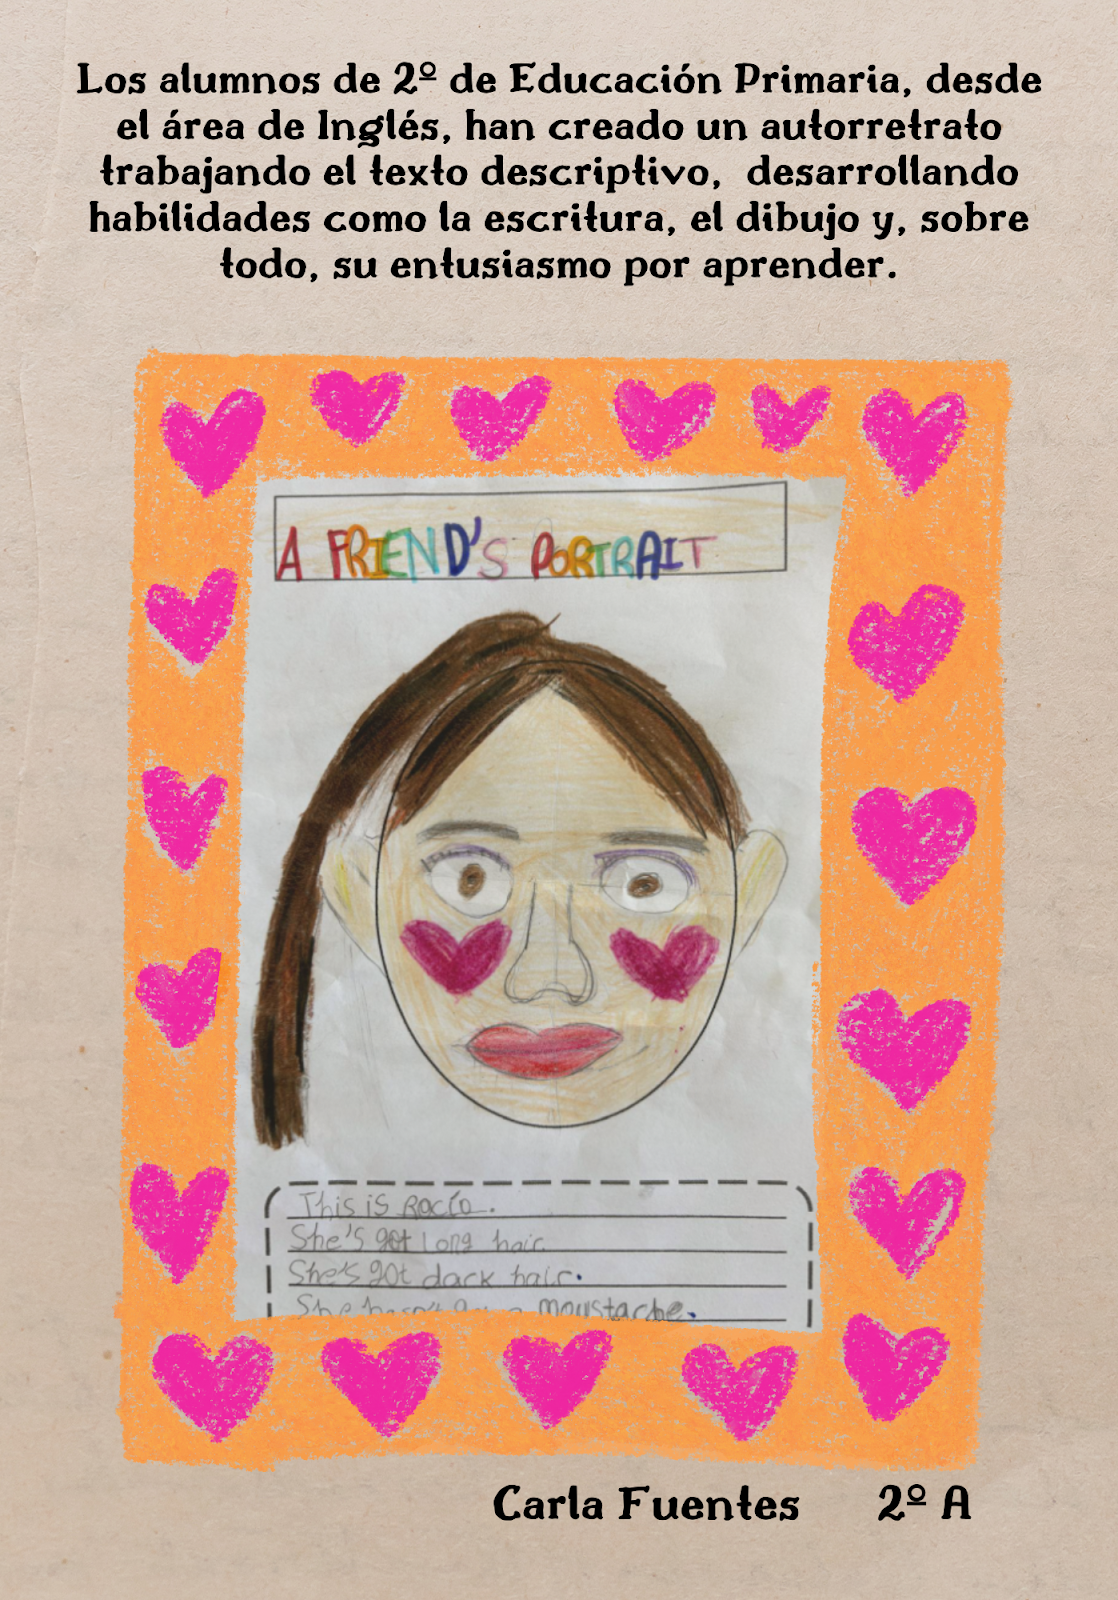 Los alumnos de 2º de Educación Primaria, desde
el área de Inglés, han creado un autorretrato
trabajando el texto descriptivo, desarrollando
habilidades como la escritura, el dibujo y, sobre
todo, su entusiasmo por aprender.
A FRIEND'S PORTRAIT
This is Rocío.
She's got long hair.
She's got dark hair.
She hasn't moustache.
Carla Fuentes 2º A